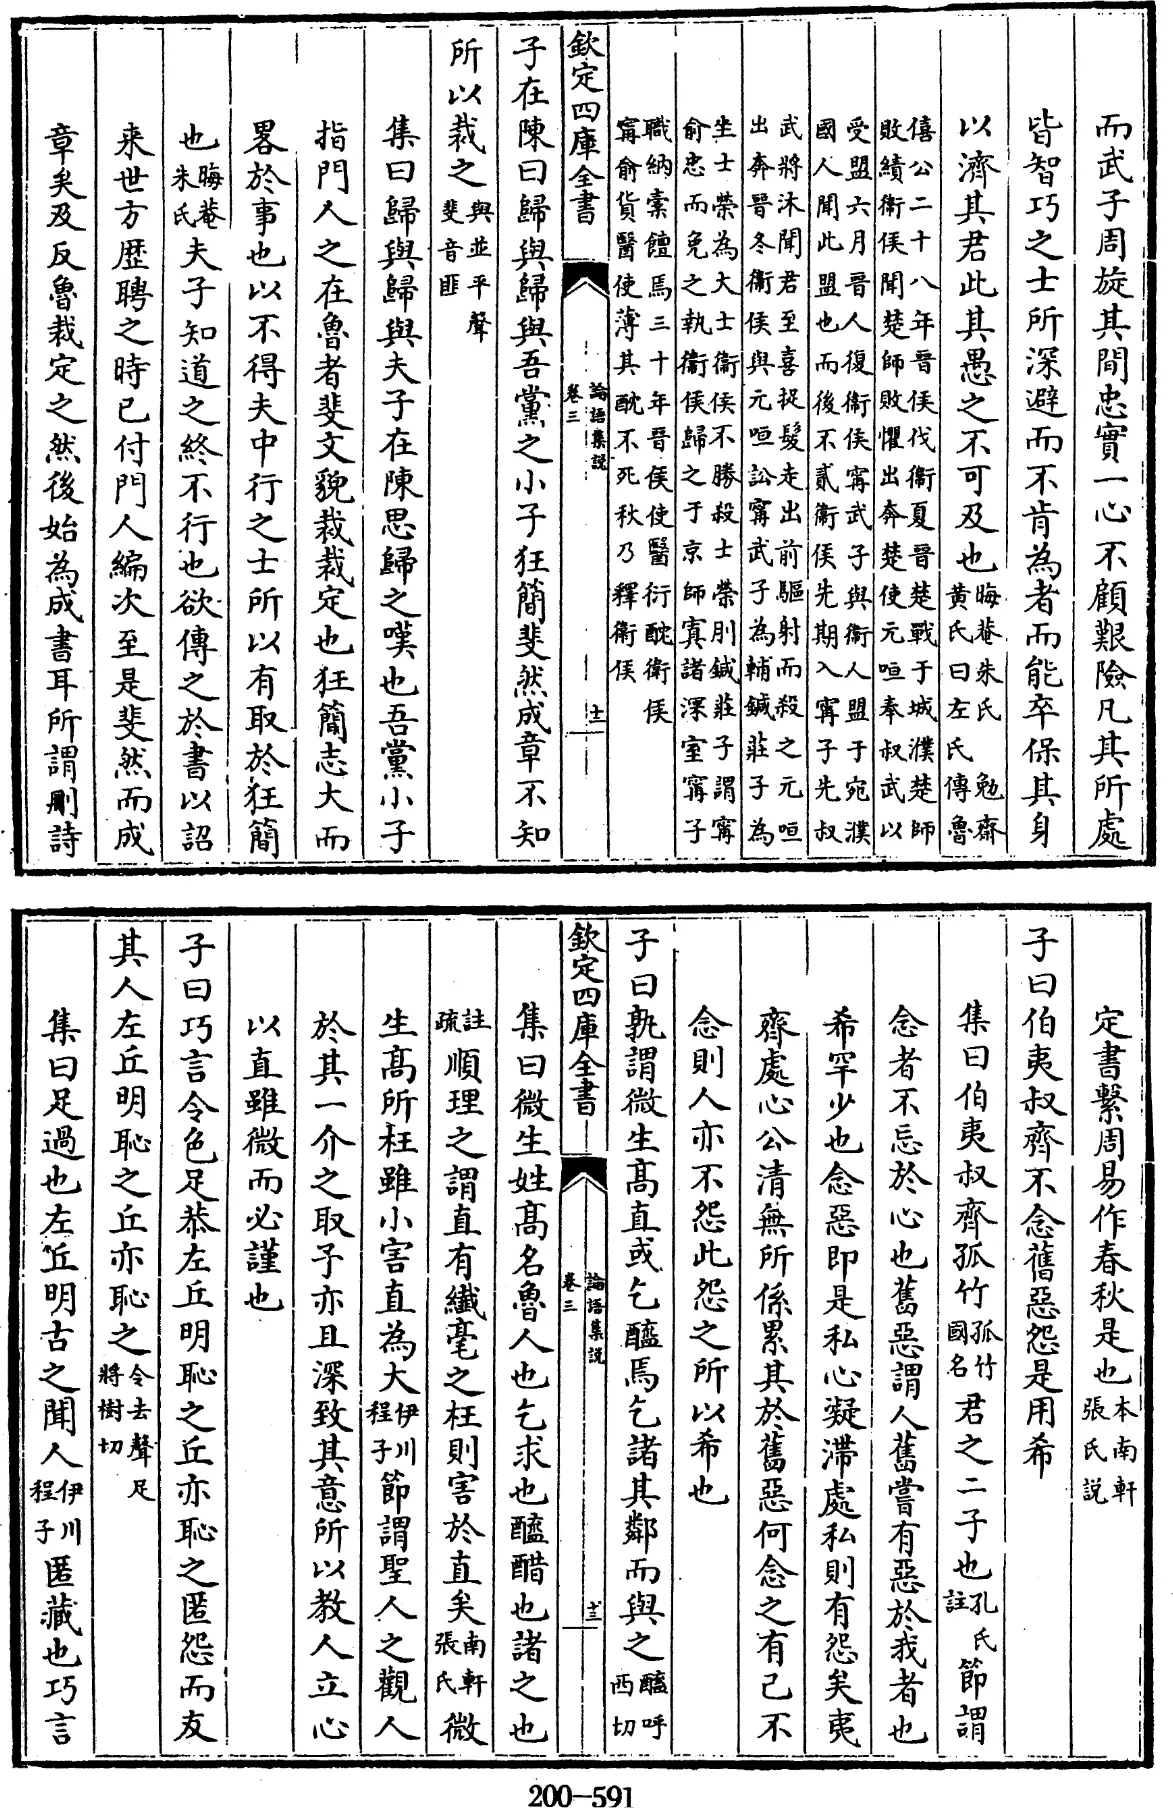 而武子周旋其間忠實一心不顧艱險凡其所處
皆智巧之士所深避而不肯為者而能卒保其身
以濟其君此其愚之不可及也晦菴朱氏 勉齋黄氏曰左氏傳魯
僖公二十八年晉侯伐衛夏晉楚戰于城濮楚師
敗績衛侯聞楚師敗懼出奔楚使元咺奉叔武以
受盟六月晉人復衛侯甯武子與衛人盟于宛濮
國人聞此盟也而後不貳衛侯先期入甯子先叔
武將沐聞君至喜捉髮走出前驅射而殺之元咺
出奔晉冬衛侯與元咺訟甯武子為輔鍼莊子為
坐士榮為大士衛侯不勝殺士榮刖鍼莊子謂甯
俞忠而免之執衛侯歸之于京師寘諸深室甯子
職納橐饘焉三十年晉侯使醫衍酖衛侯
甯俞貨醫使薄其酖不死秋乃釋衛侯
欽定四庫全書
論語集說
卷三
十二
子在陳曰歸與歸與吾黨之小子狂簡斐然成章不知
所以裁之與並平聲斐音匪
集曰歸與歸與夫子在陳思歸之嘆也吾黨小子
指門人之在魯者斐文貌裁裁定也狂簡志大而
畧於事也以不得夫中行之士所以有取於狂簡
也晦菴朱氏夫子知道之終不行也欲傳之於書以詔
來世方歴聘之時已付門人編次至是斐然而成
章矣及反魯裁定之然後始為成書耳所謂刪詩
定書繫周易作春秋是也本南軒張氏説
子曰伯夷叔齊不念舊惡怨是用希
集曰伯夷叔齊孤竹孤竹國名君之二子也孔氏註節謂
念者不忘於心也舊惡謂人舊嘗有惡於我者也
希罕少也念惡即是私心凝滯處私則有怨矣夷
齊處心公清無所係累其於舊惡何念之有己不
念則人亦不怨此怨之所以希也
子曰孰謂微生髙直或乞醯焉乞諸其鄰而與之醯呼西切
欽定四庫全書
論語集說
卷三
十三
集曰微生姓髙名魯人也乞求也醯醋也諸之也
註疏順理之謂直有纎毫之枉則害於直矣南軒張氏微
生髙所枉雖小害直為大伊川程子節謂聖人之觀人
於其一介之取予亦且深致其意所以教人立心
以直雖微而必謹也
子曰巧言令色足恭左丘明恥之丘亦恥之匿怨而友
其人左丘明恥之丘亦恥之令去聲足將樹切
集曰足過也左丘明古之聞人伊川程子匿藏也巧言
200-591